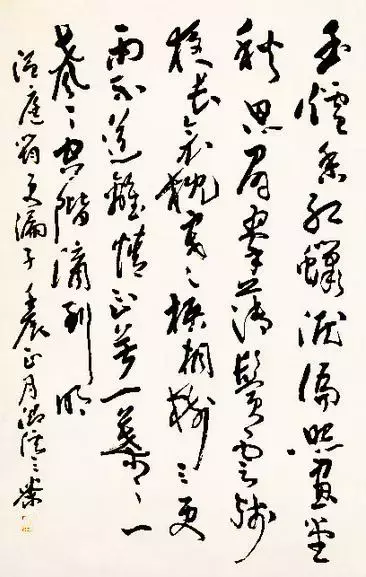 玉爐香紅蠟淚偏照畫堂
秋思眉翠薄鬢雲殘
夜長衾枕寒梧桐樹三更
雨不道離情正苦一葉〻一
聲〻空階滴到明
溫庭筠更漏子壬辰正月